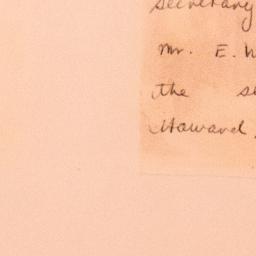 secretary
Mr. E. W
the s
Howard,